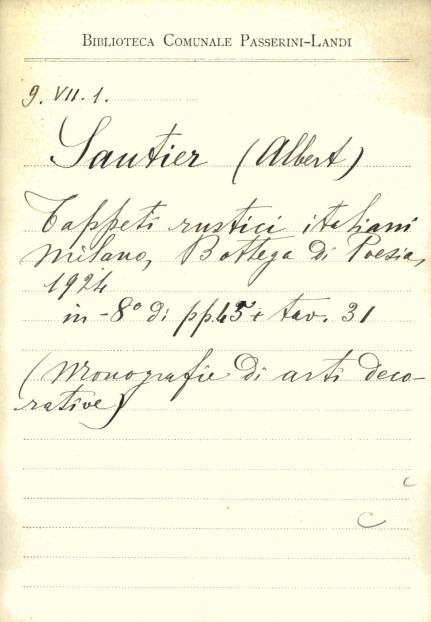 BIBLIOTECA COMUNALE PASSERINI-LANDI
9. VII. 1.
Sautier (Albert)
Tappeti rustici italiani
Milano, Bottega di Poesia,
1924
in-8° di pp. 45 + tav. 31
(Monografie di arti deco-
rative)